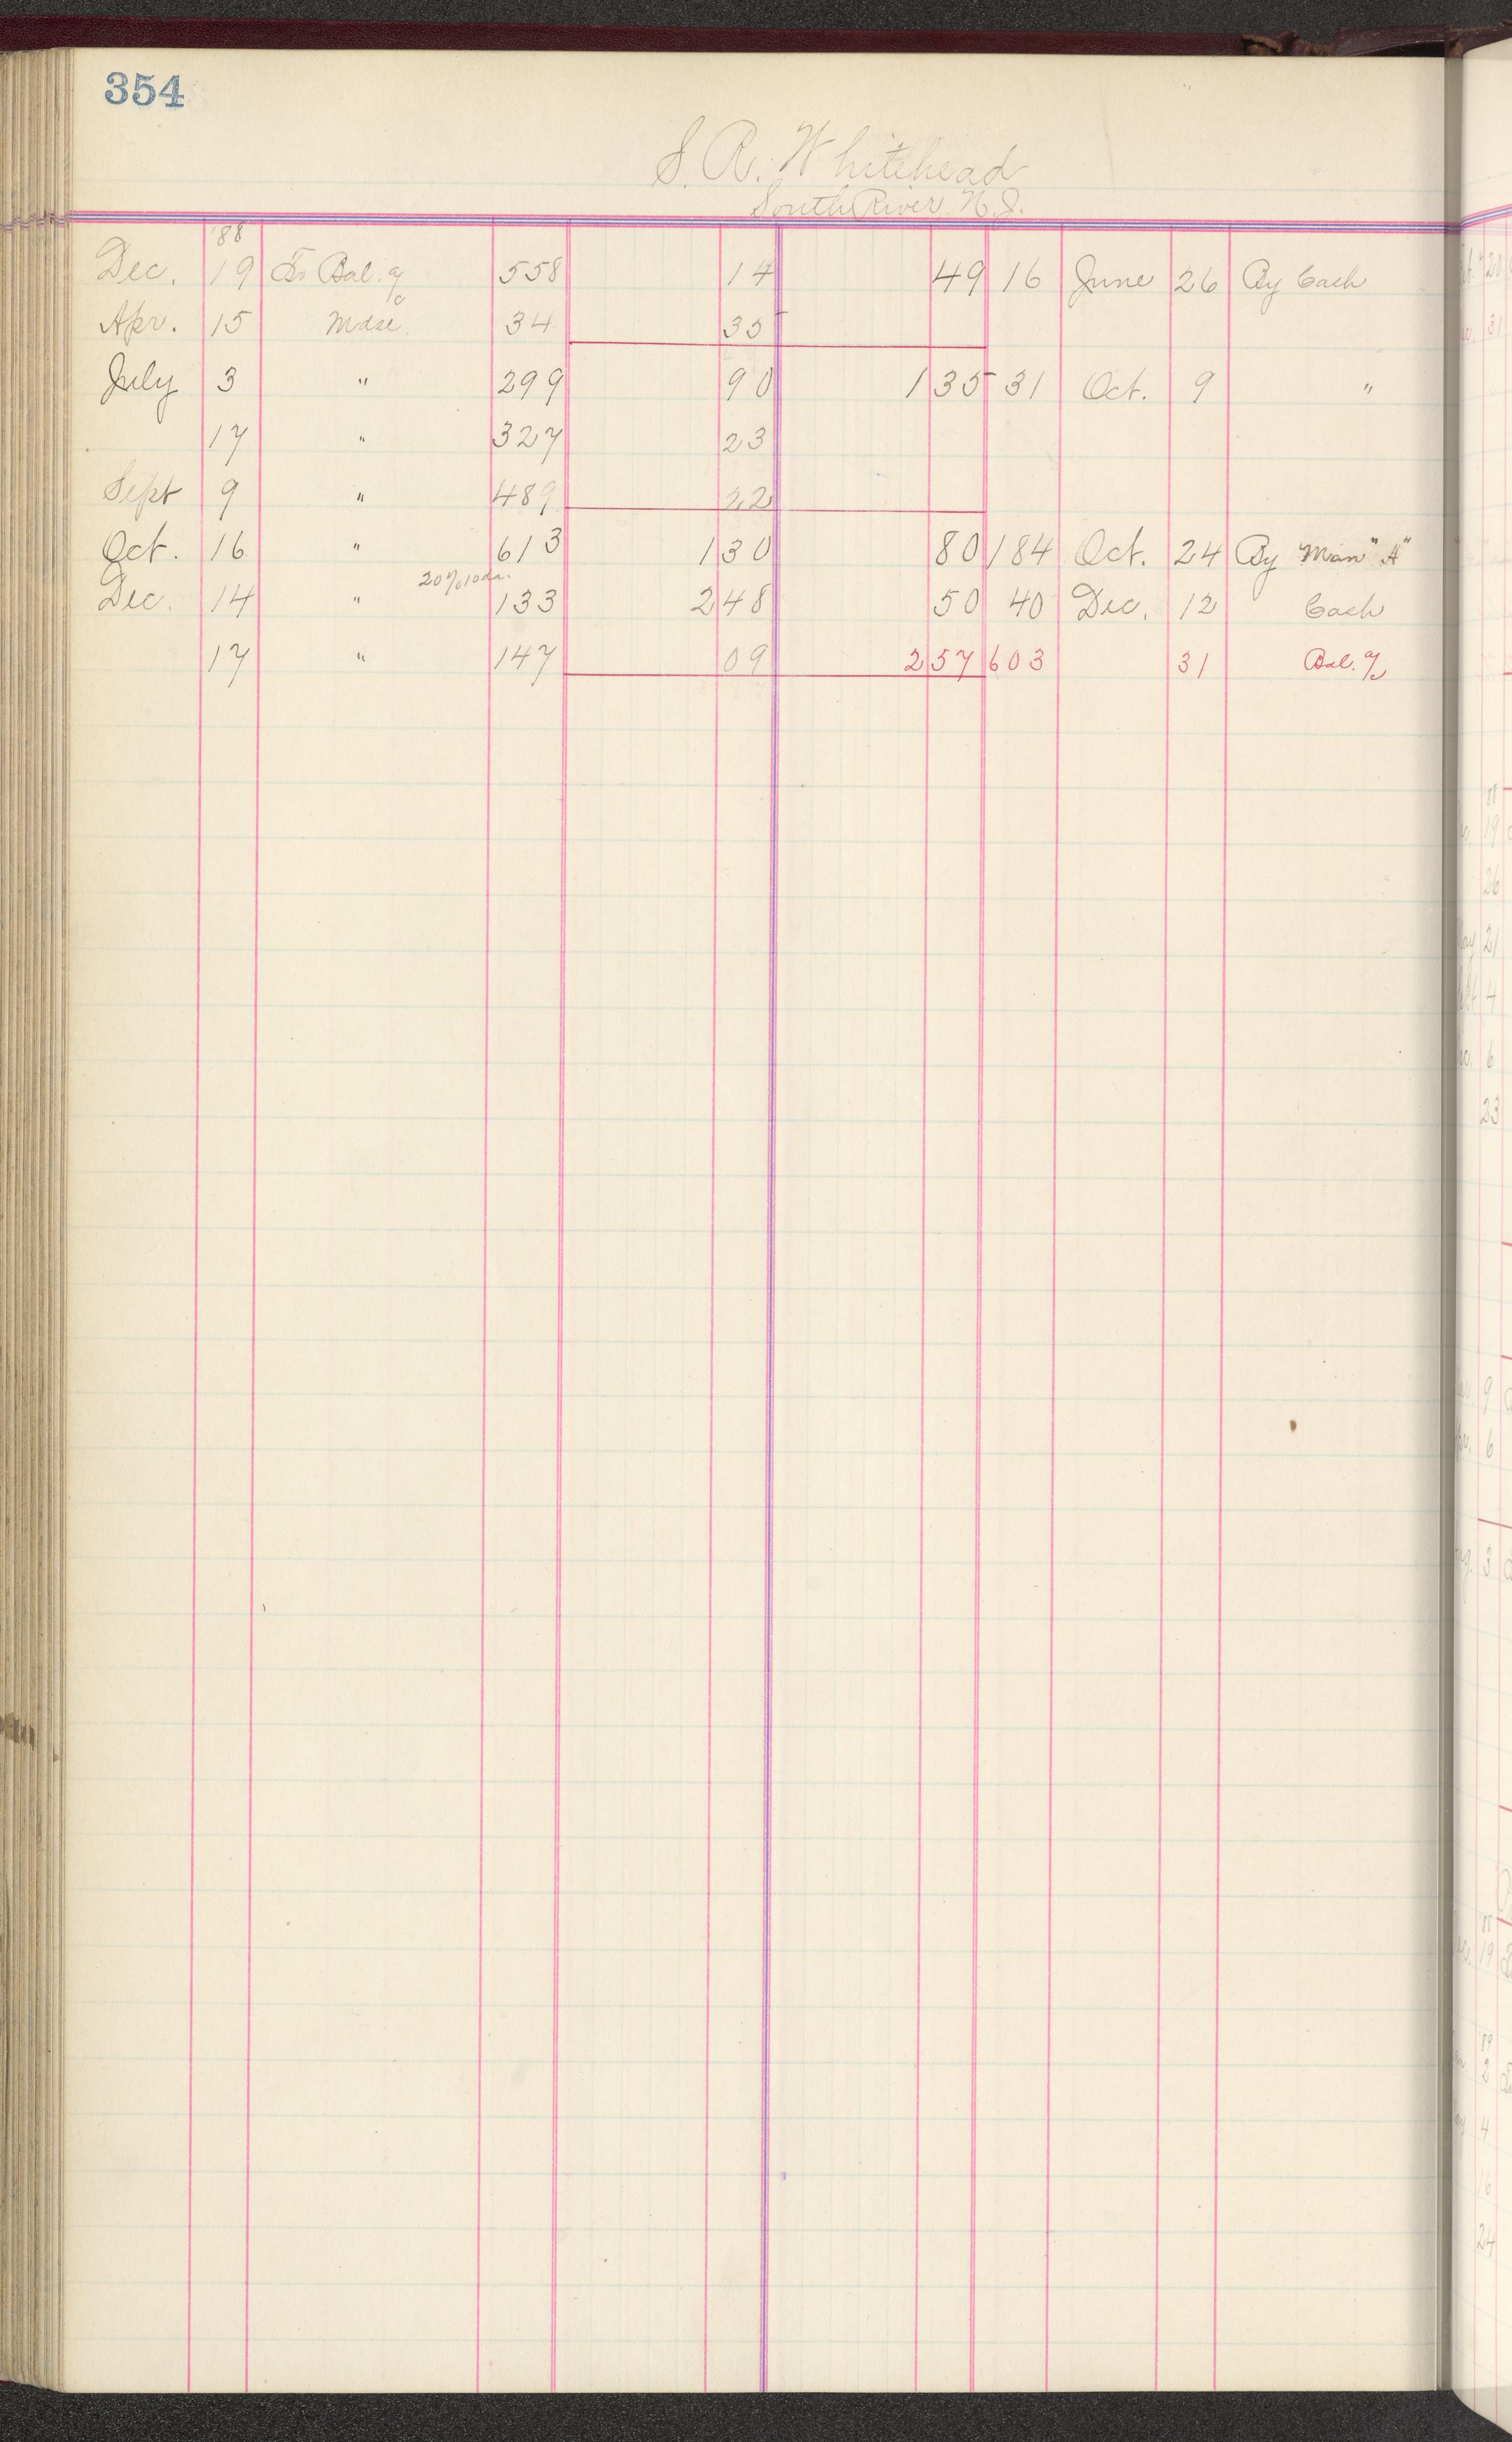 354
S. R. Whitehead
South River N.J.
'88
Dec. 19 To Bal. a/c 558 14 49 16 June 26 By Cash
Apr. 15 Mdse. 34 35
July 3 " 299 90 1 35 31 Oct. 9 "
17 " 327 23
Sept 9 " 489 22
Oct. 16 " 613 1 30 80 184 Oct. 24 By Man "A"
Dec. 14 " 20% 10 da. 133 2 48 50 40 Dec. 12 Cash
17 " 147 09 2 57 603 31 Bal. a/c